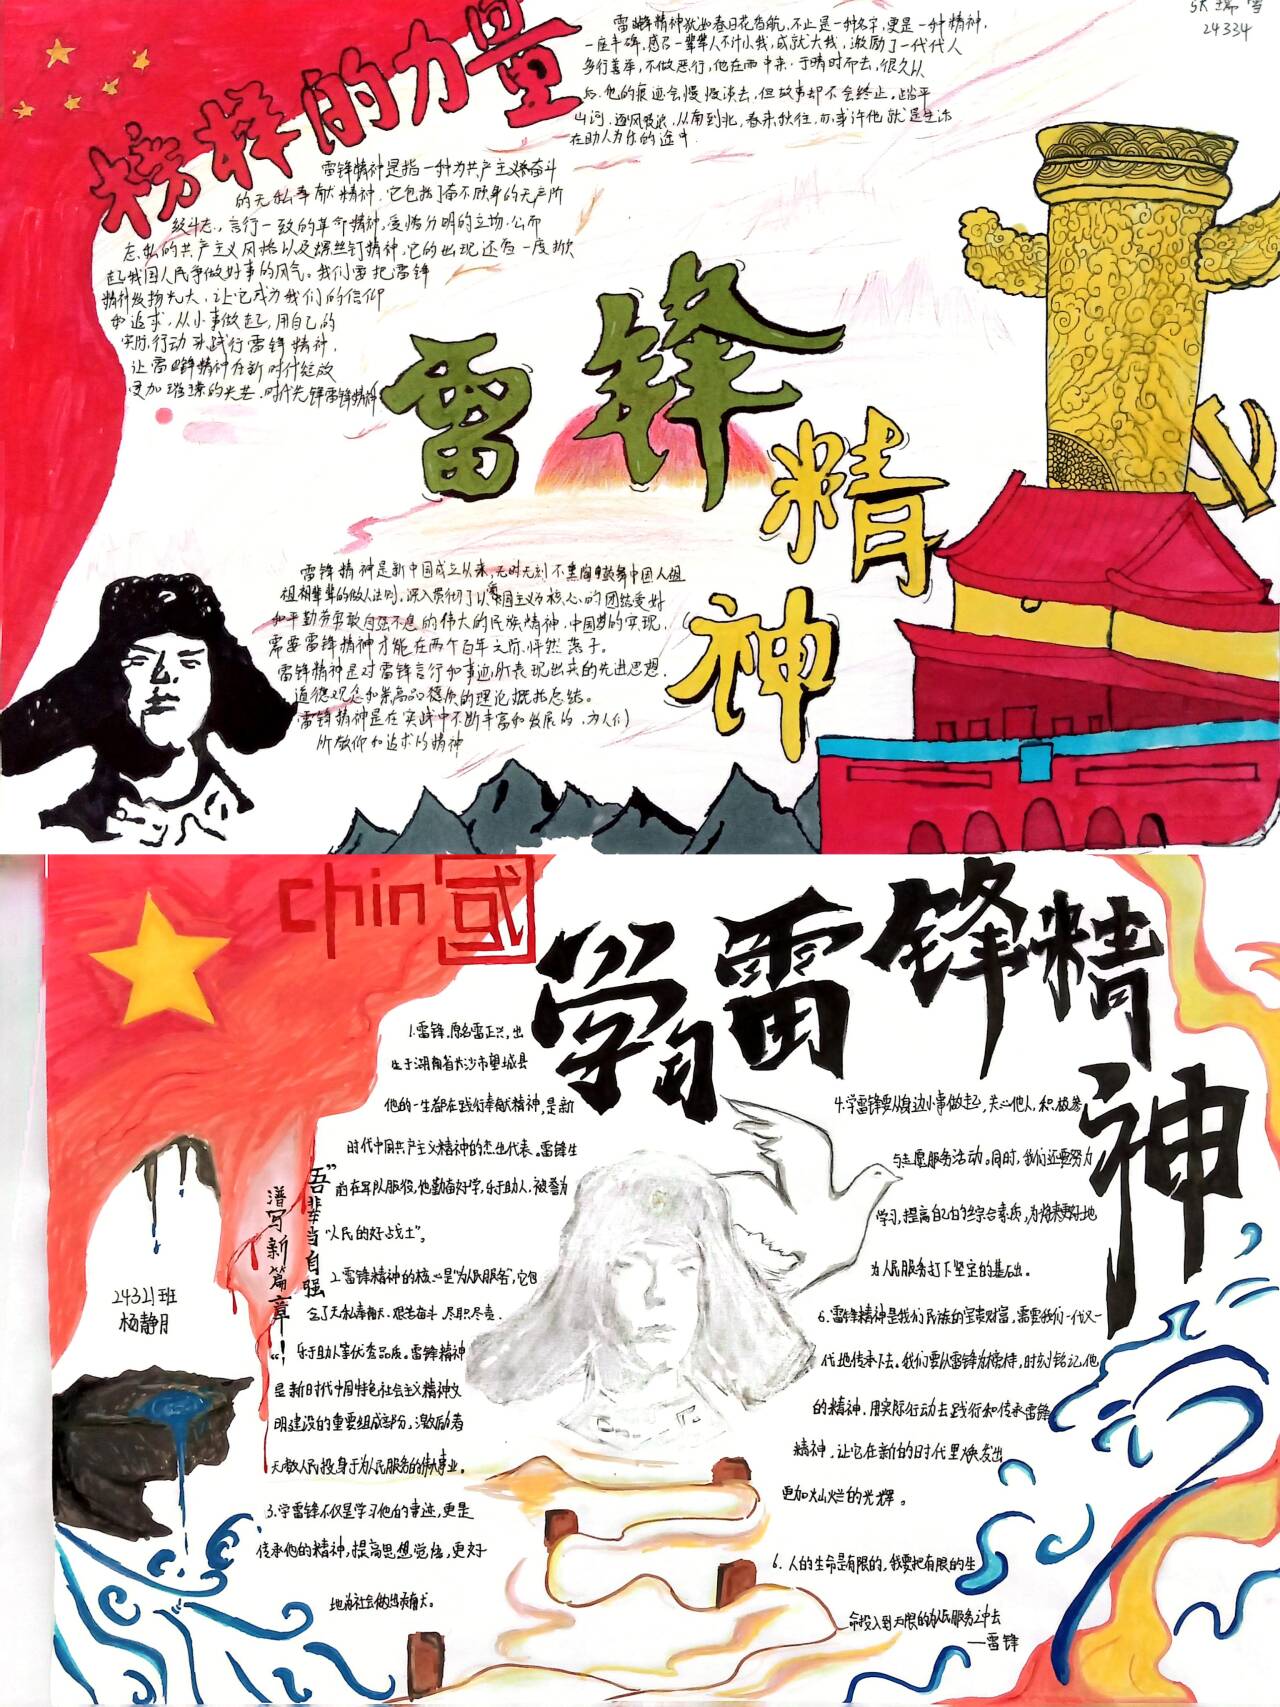 榜样的力量
24334
雷锋精神犹如春日花香般，不止是一种名字，更是一种精神，
一座丰碑，感召一辈辈人不计小我，成就大我，激励了一代代人
多行善举，不做恶行，他在雨中来，于晴时而去，很久以
后，他的痕迹会慢慢淡去，但故事却不会终止。踏平
山河，逐风破浪，从南到北，春来秋往，也许他就是生活
在助人为乐的途中
雷锋精神是指一种为共产主义而奋斗
的无私奉献精神，它包括了奋不顾身的无产阶
级斗志，言行一致的革命精神，爱憎分明的立场，公而
忘私的共产主义风格以及螺丝钉精神，它的出现还曾一度掀
起我国人民争做好事的风气。我们需把雷锋
精神发扬光大，让它成为我们的信仰
和追求，从小事做起，用自己的
实际行动来践行雷锋精神，
让雷锋精神在新时代绽放
更加璀璨的光芒，时代先锋雷锋精神
雷锋
精
神
雷锋精神是新中国成立以来，无时无刻不熏陶鼓舞中国人祖
祖辈辈的做人法则，深入贯彻了以爱国主义为核心的团结爱好
和平勤劳勇敢自强不息的伟大的民族精神，中国梦的实现，
需要雷锋精神才能在两个百年之际
雷锋精神是对雷锋言行和事迹所表现出来的先进思想，
道德观念和崇高品德质的理论概括总结。
雷锋精神是在实践中不断丰富和发展的，为人们
所敬仰和追求的精神
chin国
学习雷锋精
神
1.雷锋，原名雷正兴，出
生于湖南省长沙市望城县
他的一生都在践行奉献精神，是新
时代中国共产主义精神的杰出代表。雷锋生
前在军队服役，他勤奋好学，乐于助人，被誉为
“人民的好战士”。
2.雷锋精神的核心是“为人民服务”，它包
含了无私奉献、艰苦奋斗、尽职尽责、
乐于助人等优秀品质。雷锋精神
是新时代中国特色社会主义精神文
明建设的重要组成部分，激励着
无数人民投身于为人民服务的伟大事业。
3.学雷锋不仅是学习他的事迹，更是
传承他的精神，提高思想觉悟，更好
地为社会做出贡献。
“吾辈当自强
谱写新篇章！”
24321班
杨静月
4.学雷锋要从身边小事做起，关心他人，积极参
与志愿服务活动。同时，我们还要努力
学习，提高自己的综合素质，为将来更好地
为人民服务打下坚定的基石。
6.雷锋精神是我们民族的宝贵财富，需要我们一代又一
代地传承下去。我们要以雷锋为榜样，时刻铭记他
的精神，用实际行动去践行和传承雷锋
精神，让它在新的时代里焕发出
更加灿烂的光辉。
6.人的生命是有限的，我要把有限的生
命投入到无限的为人民服务之中去
—雷锋